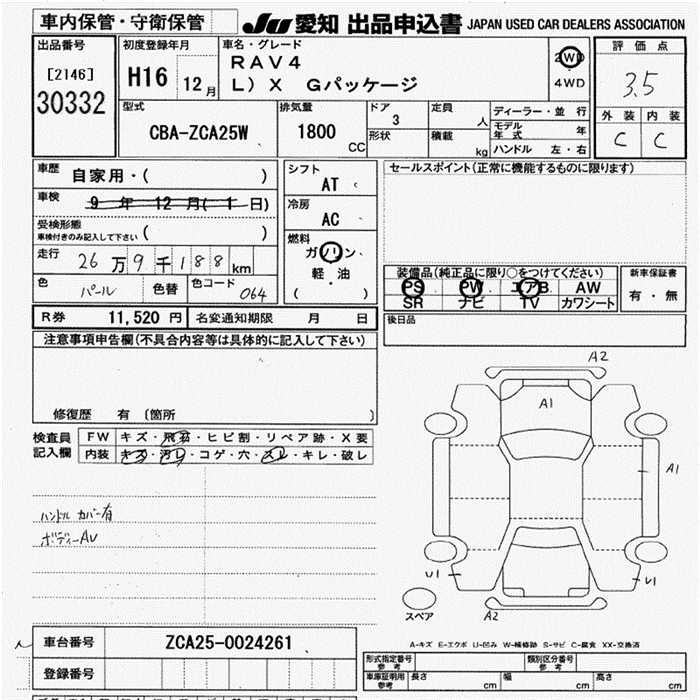 車内保管・守衛保管
JU 愛知 出品申込書 JAPAN USED CAR DEALERS ASSOCIATION
出品番号
[2146]
30332
初度登録年月
H16 12月
車名・グレード
RAV4
L)X Gパッケージ
2WD
4WD
評価点
3.5
外装 内装
C C
型式
CBA-ZCA25W
排気量
1800 CC
ドア
3
形状
定員
人
積載
kg
ディーラー・並行
モデル年式 年
ハンドル 左・右
車歴
自家用・( )
車検
9年 12月(1日)
受検形態
車検付きのみ記入して下さい ( )
走行
26万9千188km
色
パール
色替
色コード
064
シフト
AT
冷房
AC
燃料
ガソリン
軽・油
( )
セールスポイント(正常に機能するものに限ります)
装備品(純正品に限り○をつけてください)
PS PW エアB AW
SR ナビ TV カワシート
新車保証書
有・無
R券 11,520円 名変通知期限 月 日
後日品
注意事項申告欄(不具合内容等は具体的に記入して下さい)
修復歴 有 〔箇所 〕
検査員記入欄
FW キズ・飛石・ヒビ割・リペア跡・X要
内装 キズ・汚レ・コゲ・穴・スレ・キレ・破レ
ハンドル カバー有
ボディーAU
A2
A1
A1
U1
U1
A2
スペア
A-キズ E-エクボ U-凹み W-補修跡 S-サビ C-腐食 XX-交換済
車台番号 ZCA25-0024261
登録番号
形式指定番号 参考
類別区分番号 参考
車庫証明用 参考
長さ cm 幅 cm 高さ cm